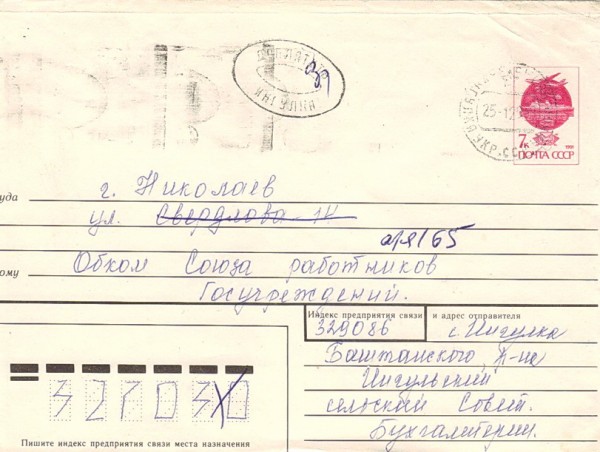 25-12
7к
ПОЧТА СССР
г. Николаев
уда
ул. Свердлова
а/я 65
ому
Обком Союза работников
Госучреждений.
Индекс предприятия связи и адрес отправителя
329086 с. Ингулка
Баштанского р-на
Ингульский
сельский Совет.
Бухгалтерия.
Пишите индекс предприятия связи места назначения